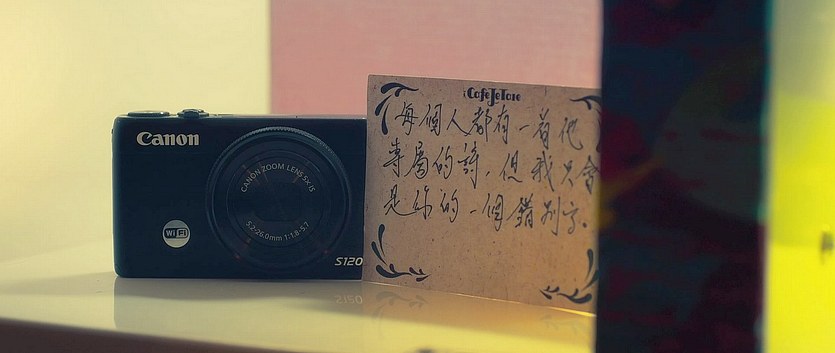 Canon
CANON ZOOM LENS 5X IS
5.2-26.0mm 1:1.8-5.7
WiFi
S120
CafeJeTaie
每個人都有一首他
專屬的詩，但我只會
是你的一個錯別字.